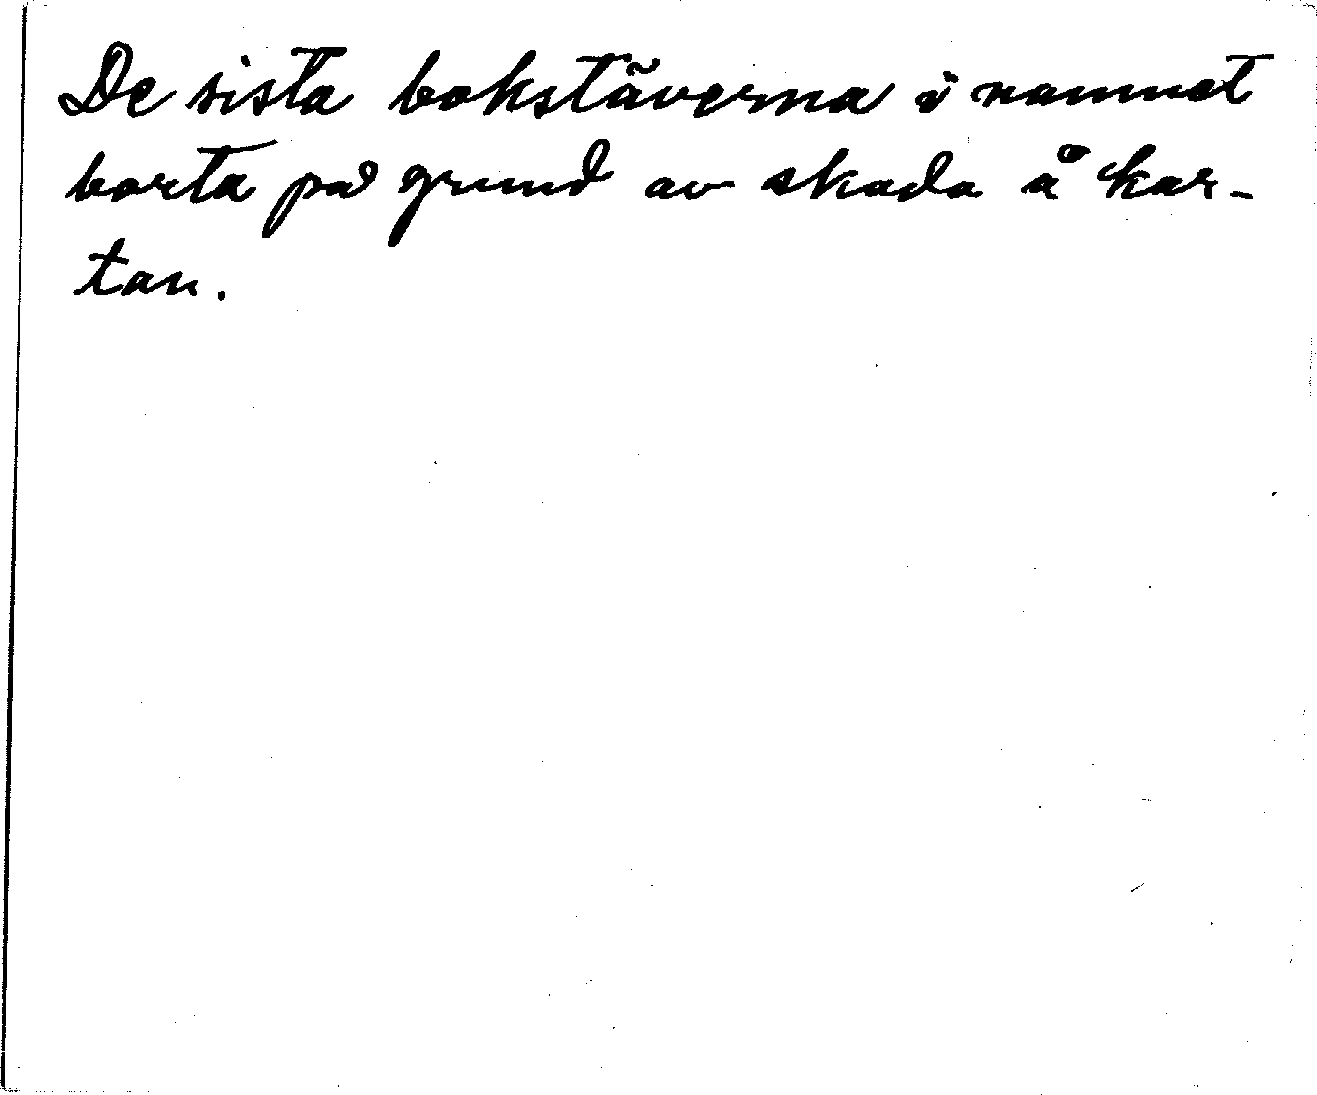 De sista bokstäverna i namnet
borta på grund av skada å kar-
tan.